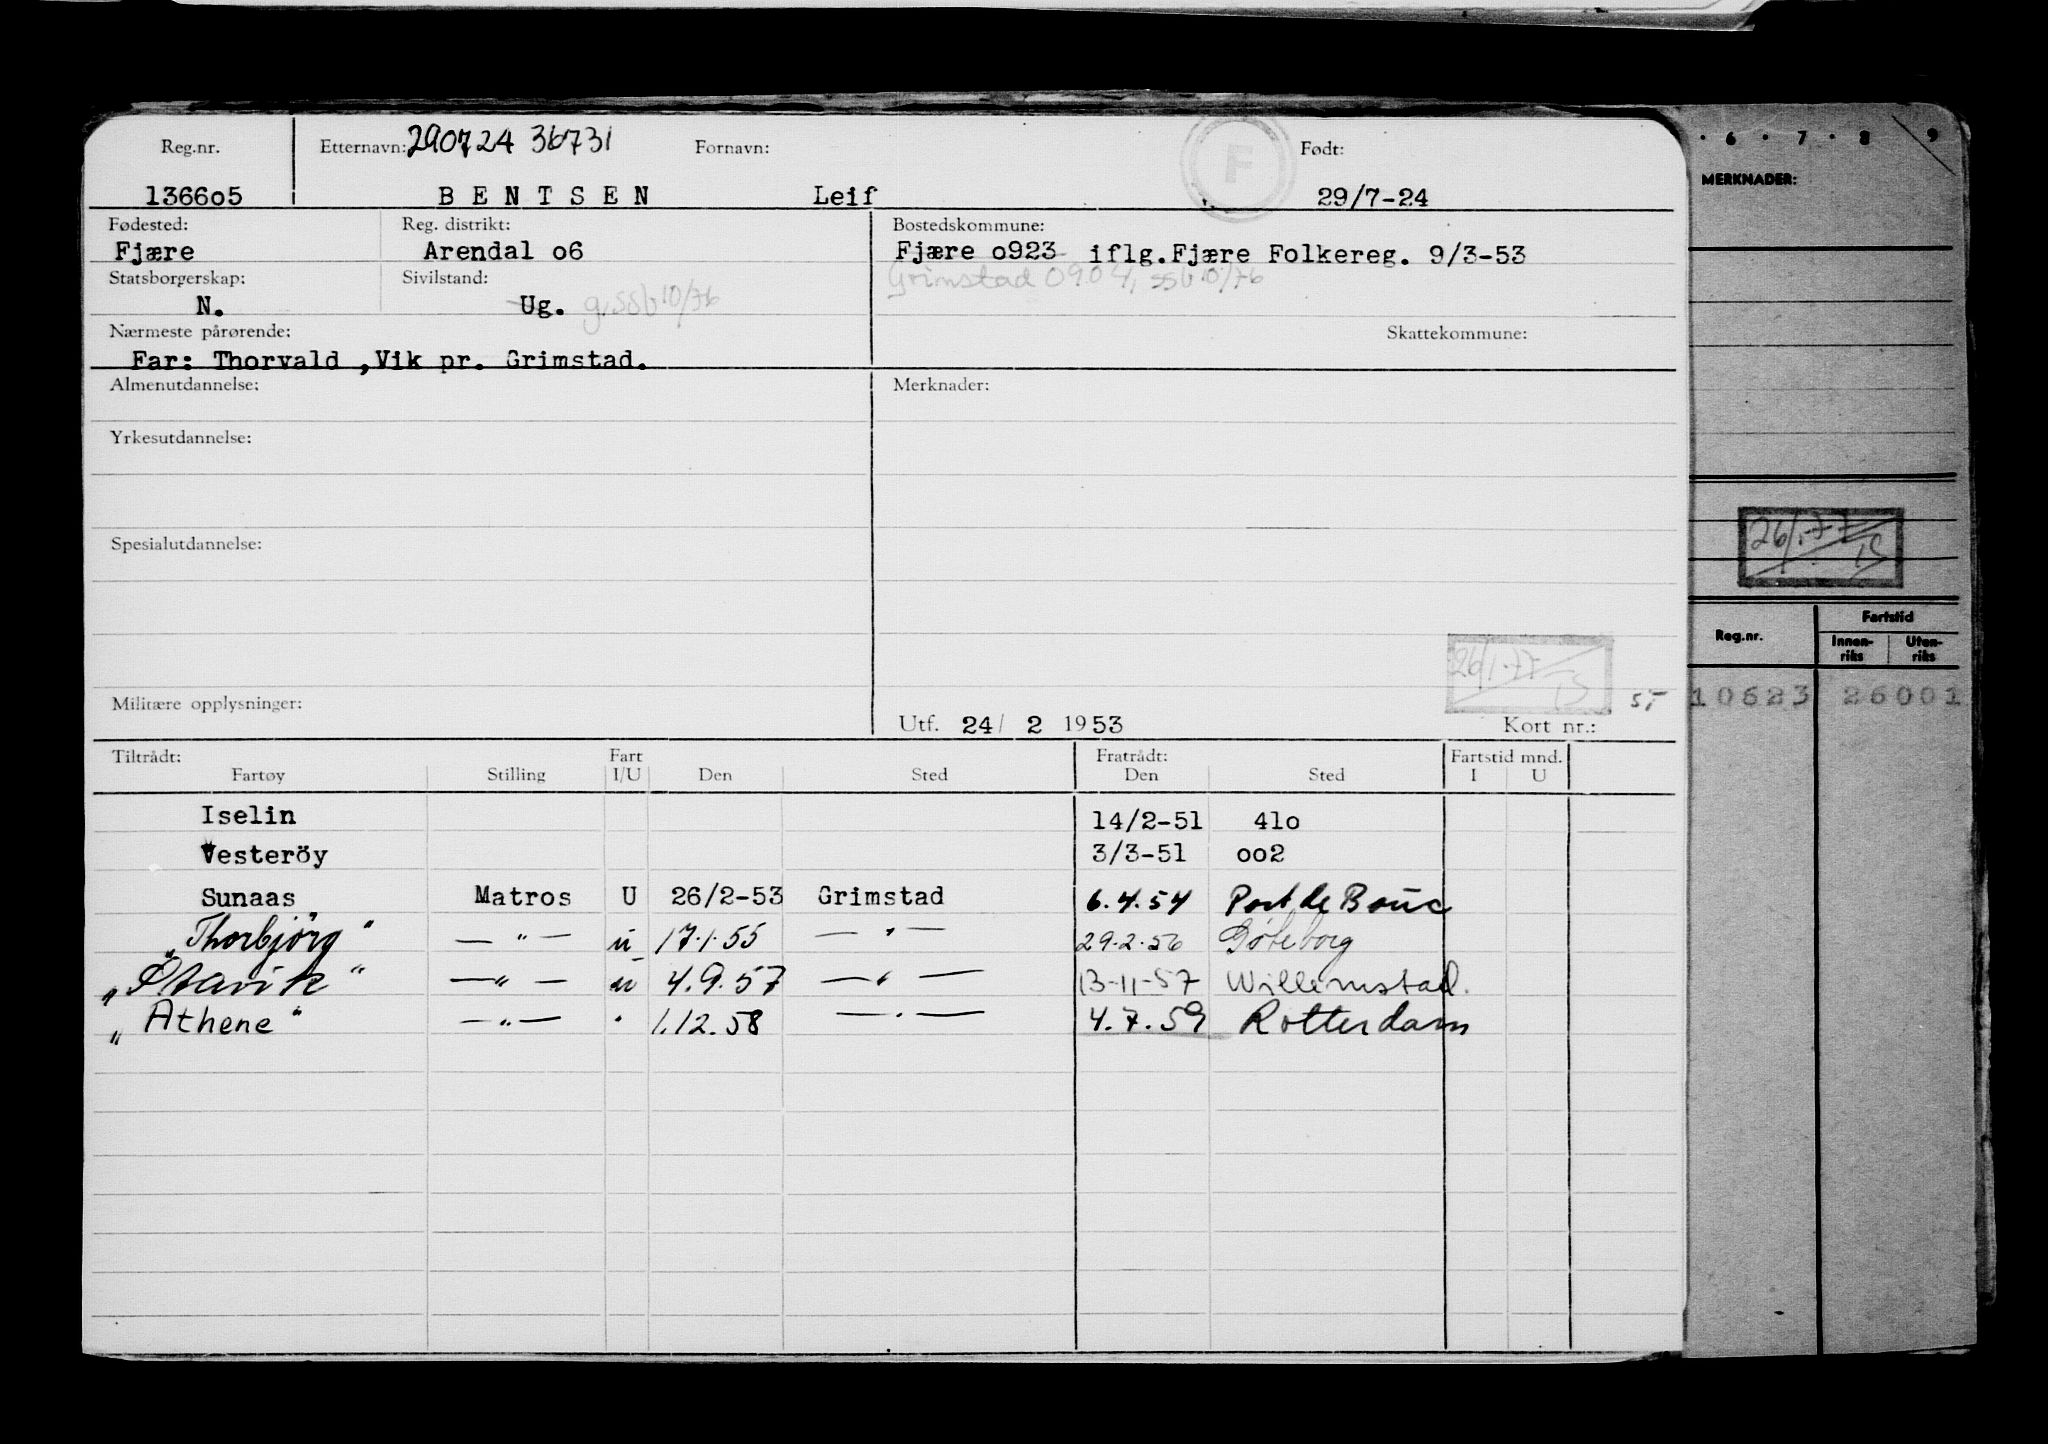 Reg.nr. Etternavn: 290724 36731 Fornavn: F Født:
1366o5 BENTSEN Leif 29/7-24
Fødested: Reg. distrikt: Bostedskommune:
Fjære Arendal o6 Fjære o923 iflg.Fjære Folkereg. 9/3-53
Grimstad 0904, ssb 10/76
Statsborgerskap: Sivilstand:
N. Ug. g. ssb 10/76
Nærmeste pårørende: Skattekommune:
Far: Thorvald ,Vik pr. Grimstad.
Almenutdannelse: Merknader:
Yrkesutdannelse:
Spesialutdannelse:
26/1-77
Militære opplysninger: Utf. 24/ 2 1953 Kort nr.:
Tiltrådt: Fart Fratrådt: Fartstid mnd.
Fartøy Stilling I/U Den Sted Den Sted I U
Iselin 14/2-51 41o
Vesteröy 3/3-51 oo2
Sunaas Matros U 26/2-53 Grimstad 6.4.54 Port de Bouc
"Thorbjörg" — " — u 17.1.55 — " — 29.2.56 Göteborg
— " — u 4.9.57 — " — 13-11-57 Willemstad.
"Athene" — " — " 1.12.58 — " — 4.7.59 Rotterdam
6 · 7 · 8 9
MERKNADER:
26/1-77
Reg.nr. Fartstid
Innen-riks Uten-riks
10623 26001